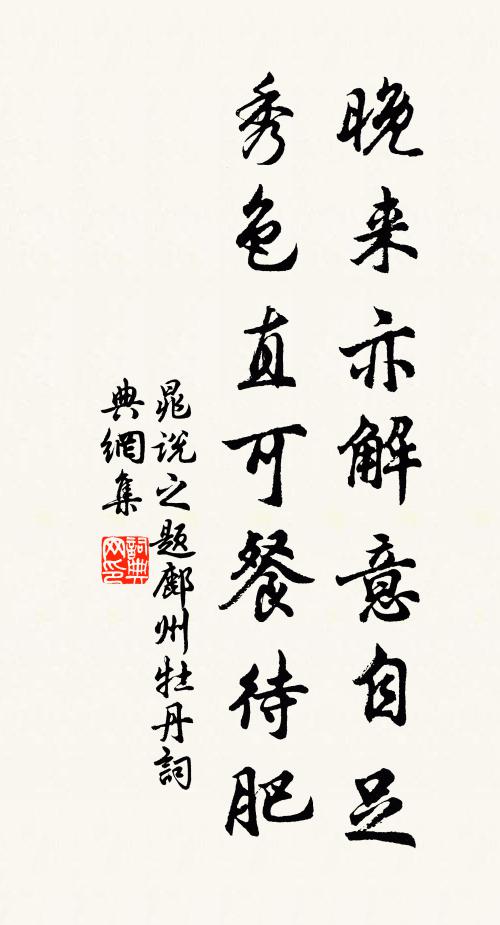 晚来亦解意自足
秀色直可餐待肥
晁说之题鄜州牡丹詞
典網集
詞典网印